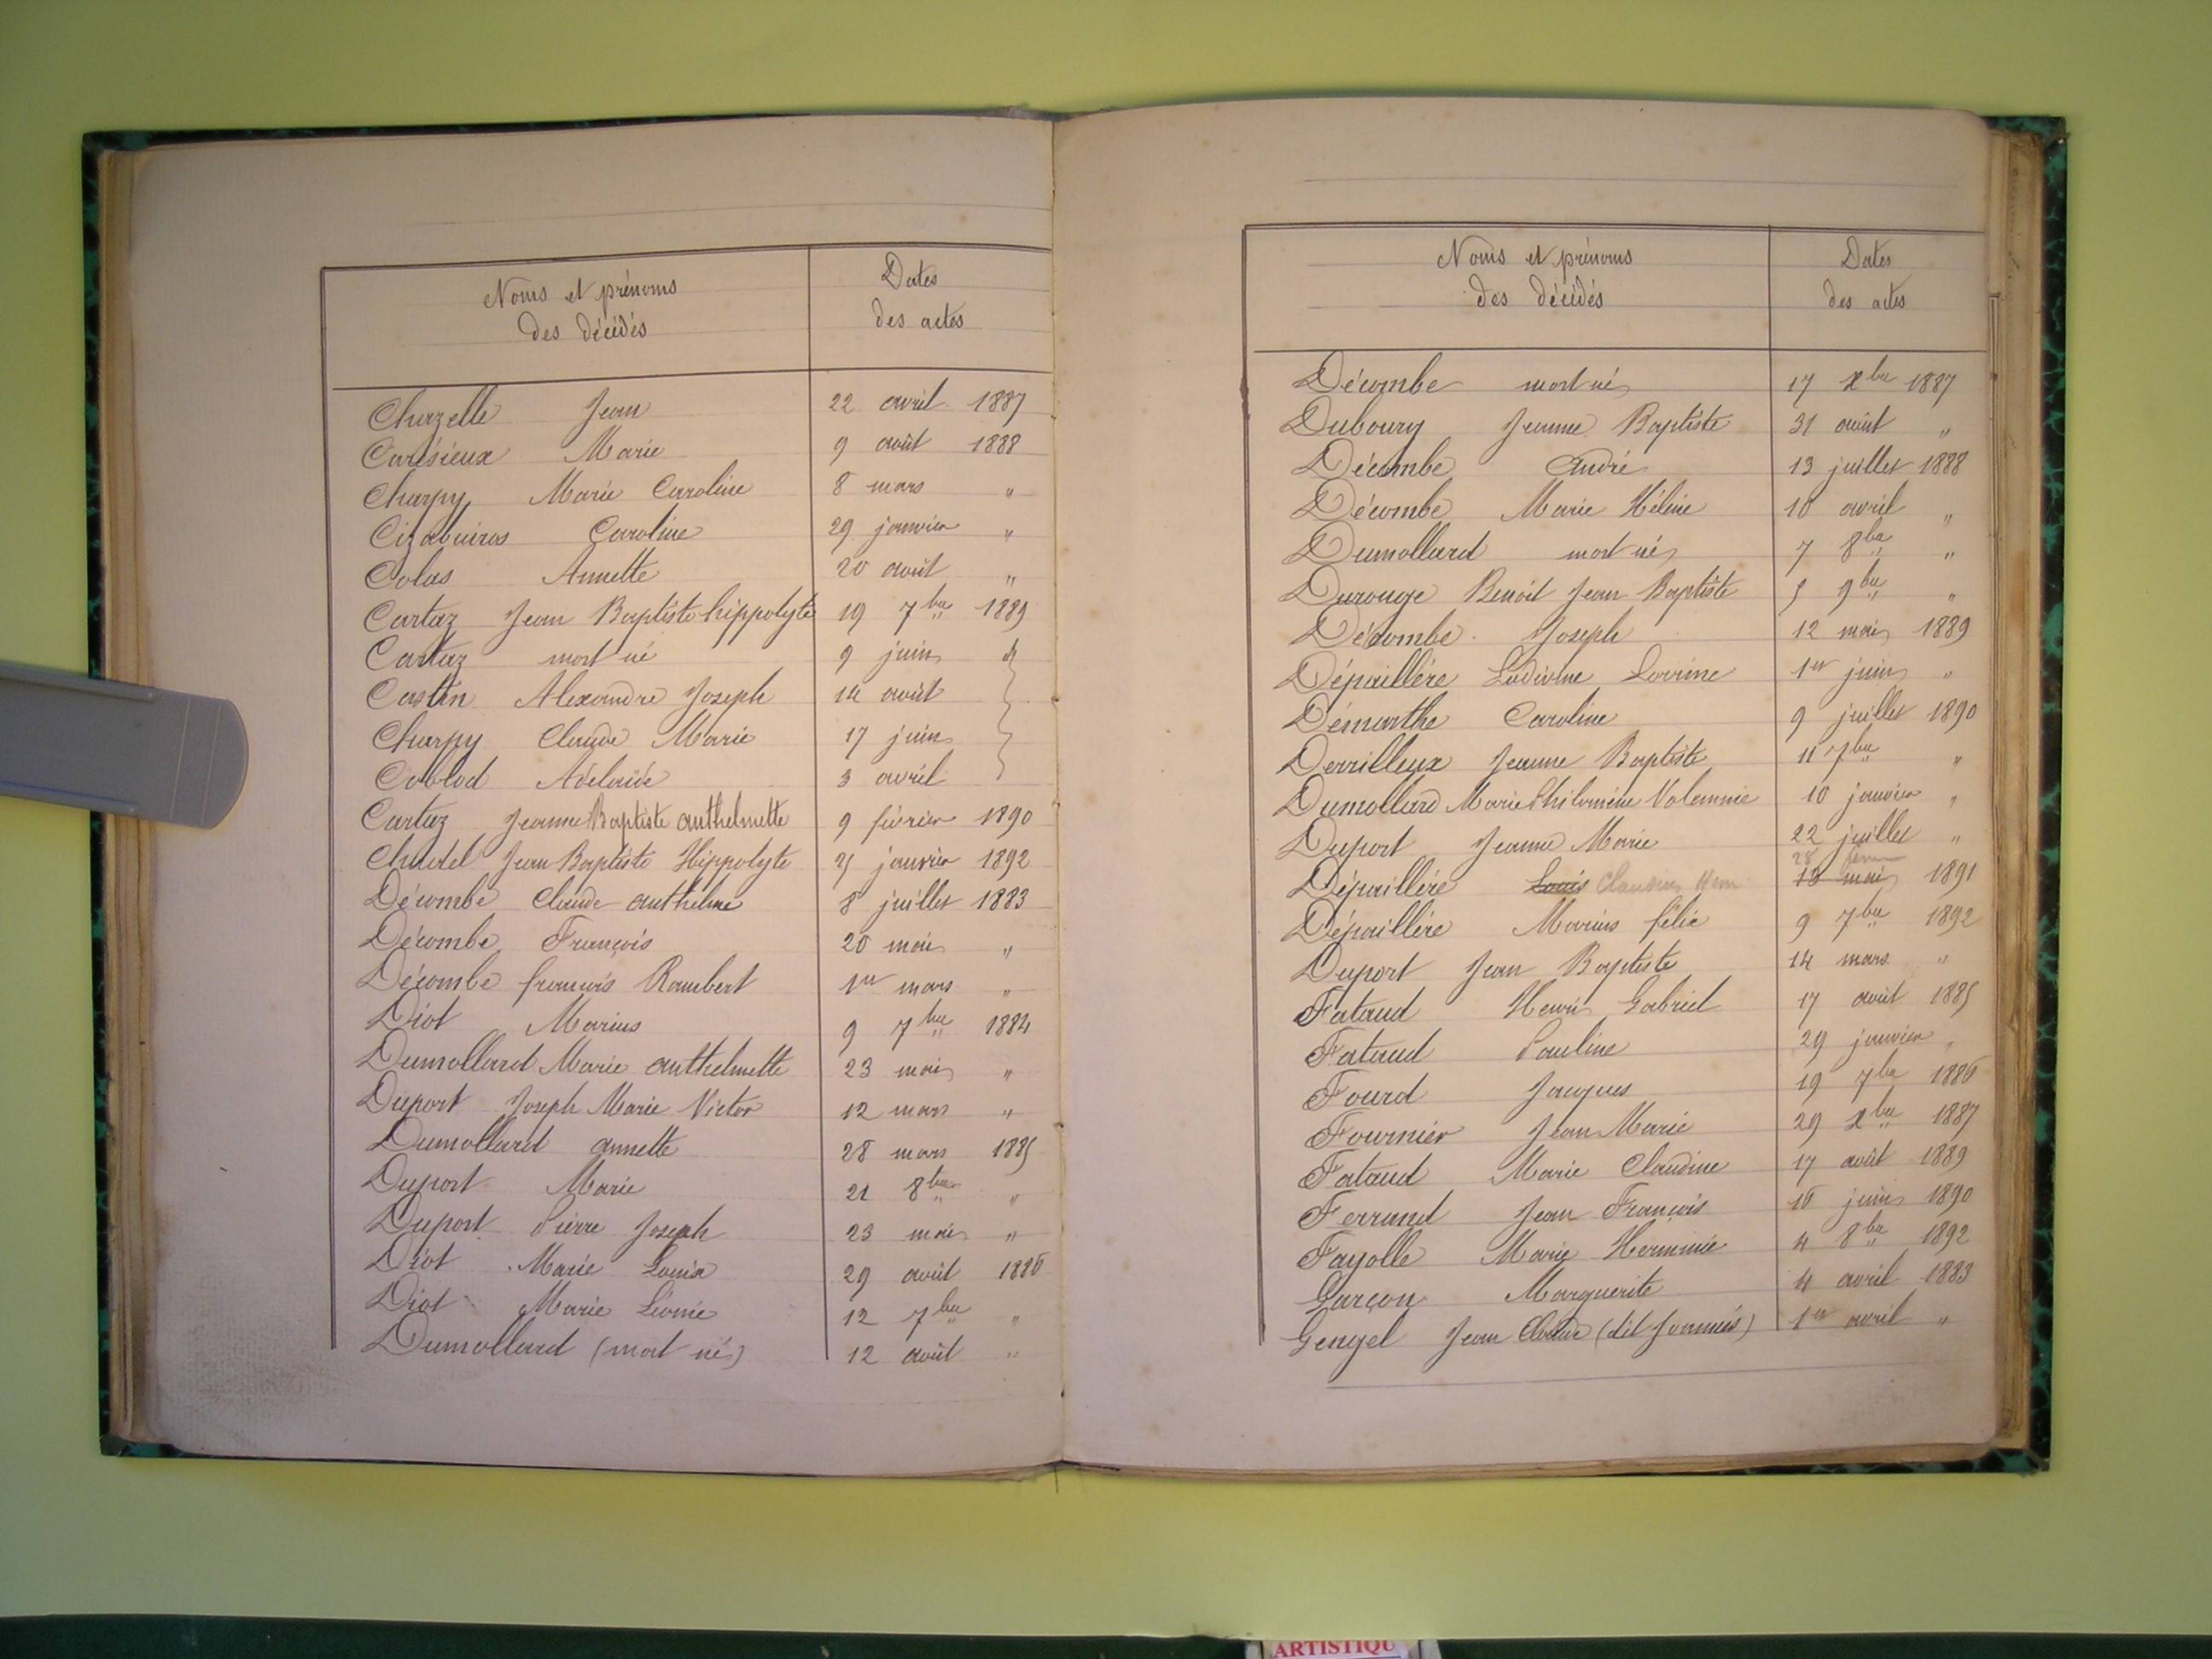 Noms et prénoms
des décédés
Dates
des actes
Chazelle Jean 22 avril 1887
Carisieux Marie 9 août 1888
Charpy Marie Caroline 8 mars "
Caroline 29 janvier "
Colas Annette 20 août "
Cartaz Jean Baptiste hippolyte 19 7bre 1889
Cartaz mort né 9 juin
Castin Alexandre Joseph 14 août
Charpy Claude Marie 17 juin
Coblod Adélaïde 3 avril
Cartaz Jeanne Baptiste anthelmette 9 février 1890
Chastel Jean Baptiste Hippolyte 25 janvier 1892
Décombe Claude anthelme 8 juillet 1883
Décombe François 20 mai "
Décombe françois Rambert 1er mars "
Diot Marius 9 7bre 1884
Dumollard Marie anthelmette 23 mai "
Duport Joseph Marie Victor 12 mars "
Dumollard annette 28 mars 1885
Duport Marie 21 8bre "
Duport Pierre Joseph 23 mai "
Diot Marie Louisa 29 août 1886
Diot Marie Léonie 12 7bre "
Dumollard (mort né) 12 août "
Noms et prénoms
des décédés
Dates
des actes
Décombe mort né 17 xbre 1887
Dubourg Jeanne Baptiste 31 août "
Décombe André 13 juillet 1888
Décombe Marie Hélène 10 avril "
Dumollard mort né 7 8bre "
Durouge Benoit Jean Baptiste 5 9bre "
Décombe Joseph 12 mai 1889
Dépaillère Ludivine 1er juin "
Démarthe Caroline 9 juillet 1890
Dervilleux Jeanne Baptiste 11 7bre "
Dumollard Marie Philomène 10 janvier "
Duport Jeanne Marie 22 juillet "
28
Dépaillère Louis Claudius 13 mai 1891
Dépaillère Marius félix 9 7bre 1892
Duport Jean Baptiste 14 mars "
Fataud Henri Gabriel 17 août 1885
Fataud Pauline 29 janvier "
Fourd Jacques 19 7bre 1886
Fournier Jean Marie 29 xbre 1887
Fataud Marie Claudine 17 août 1889
Ferrand Jean François 16 juin 1890
Fayolle Marie Herminie 4 8bre 1892
Garçon Marguerite 4 avril 1883
Gengel Jean Claude (dit Joannès) 1er avril "
ARTISTIQU